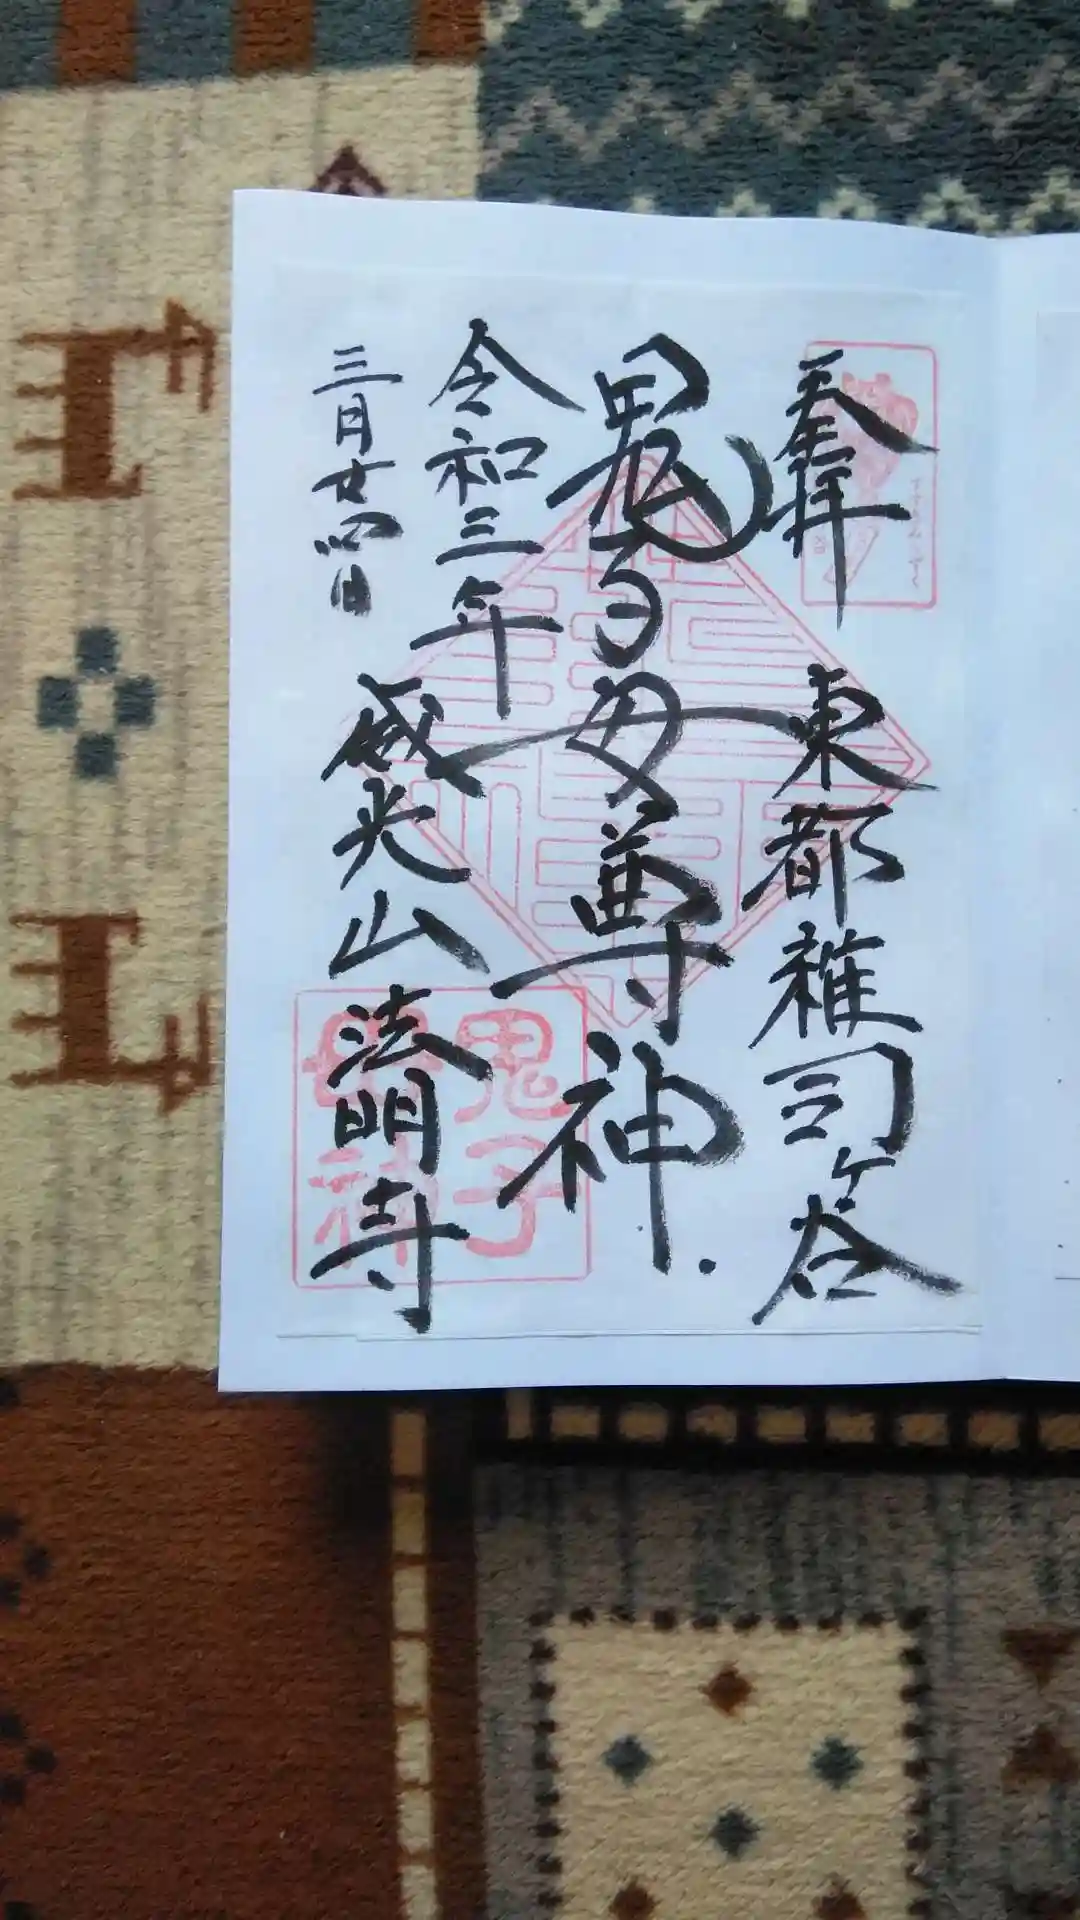 奉拝
東都雑司ヶ谷
鬼子母尊神
令和三年
三月廿四日
威光山
法明寺
鬼子
母神